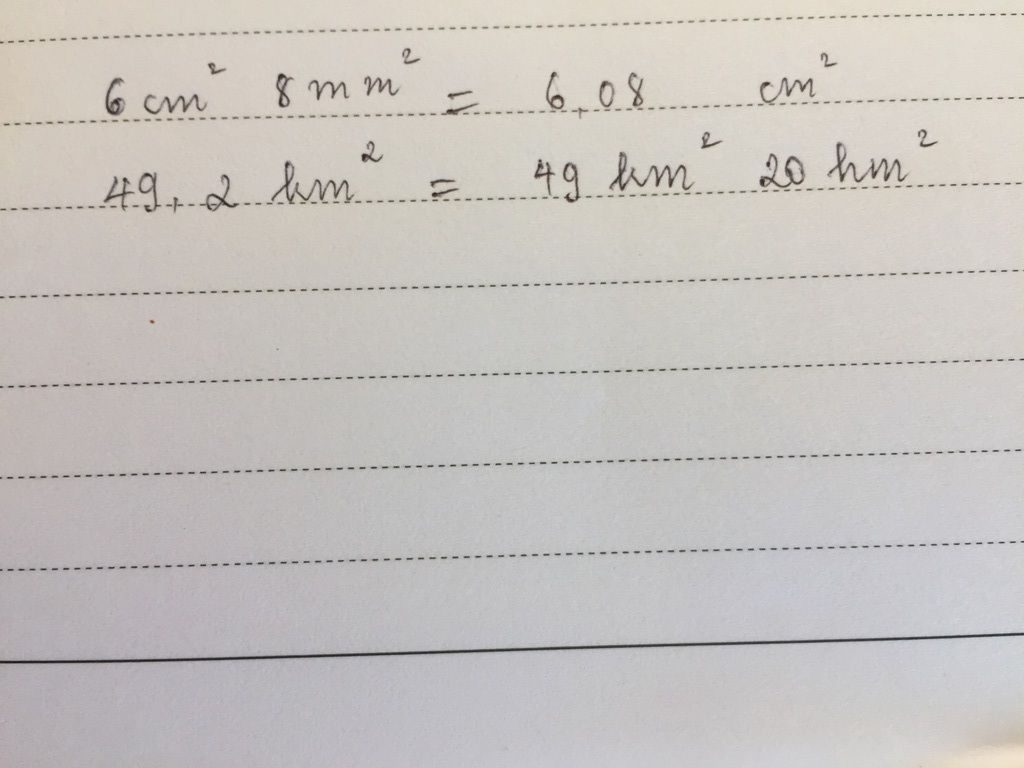 6 cm² 8 mm² = 6,08 cm²
49,2 km² = 49 km² 20 hm²